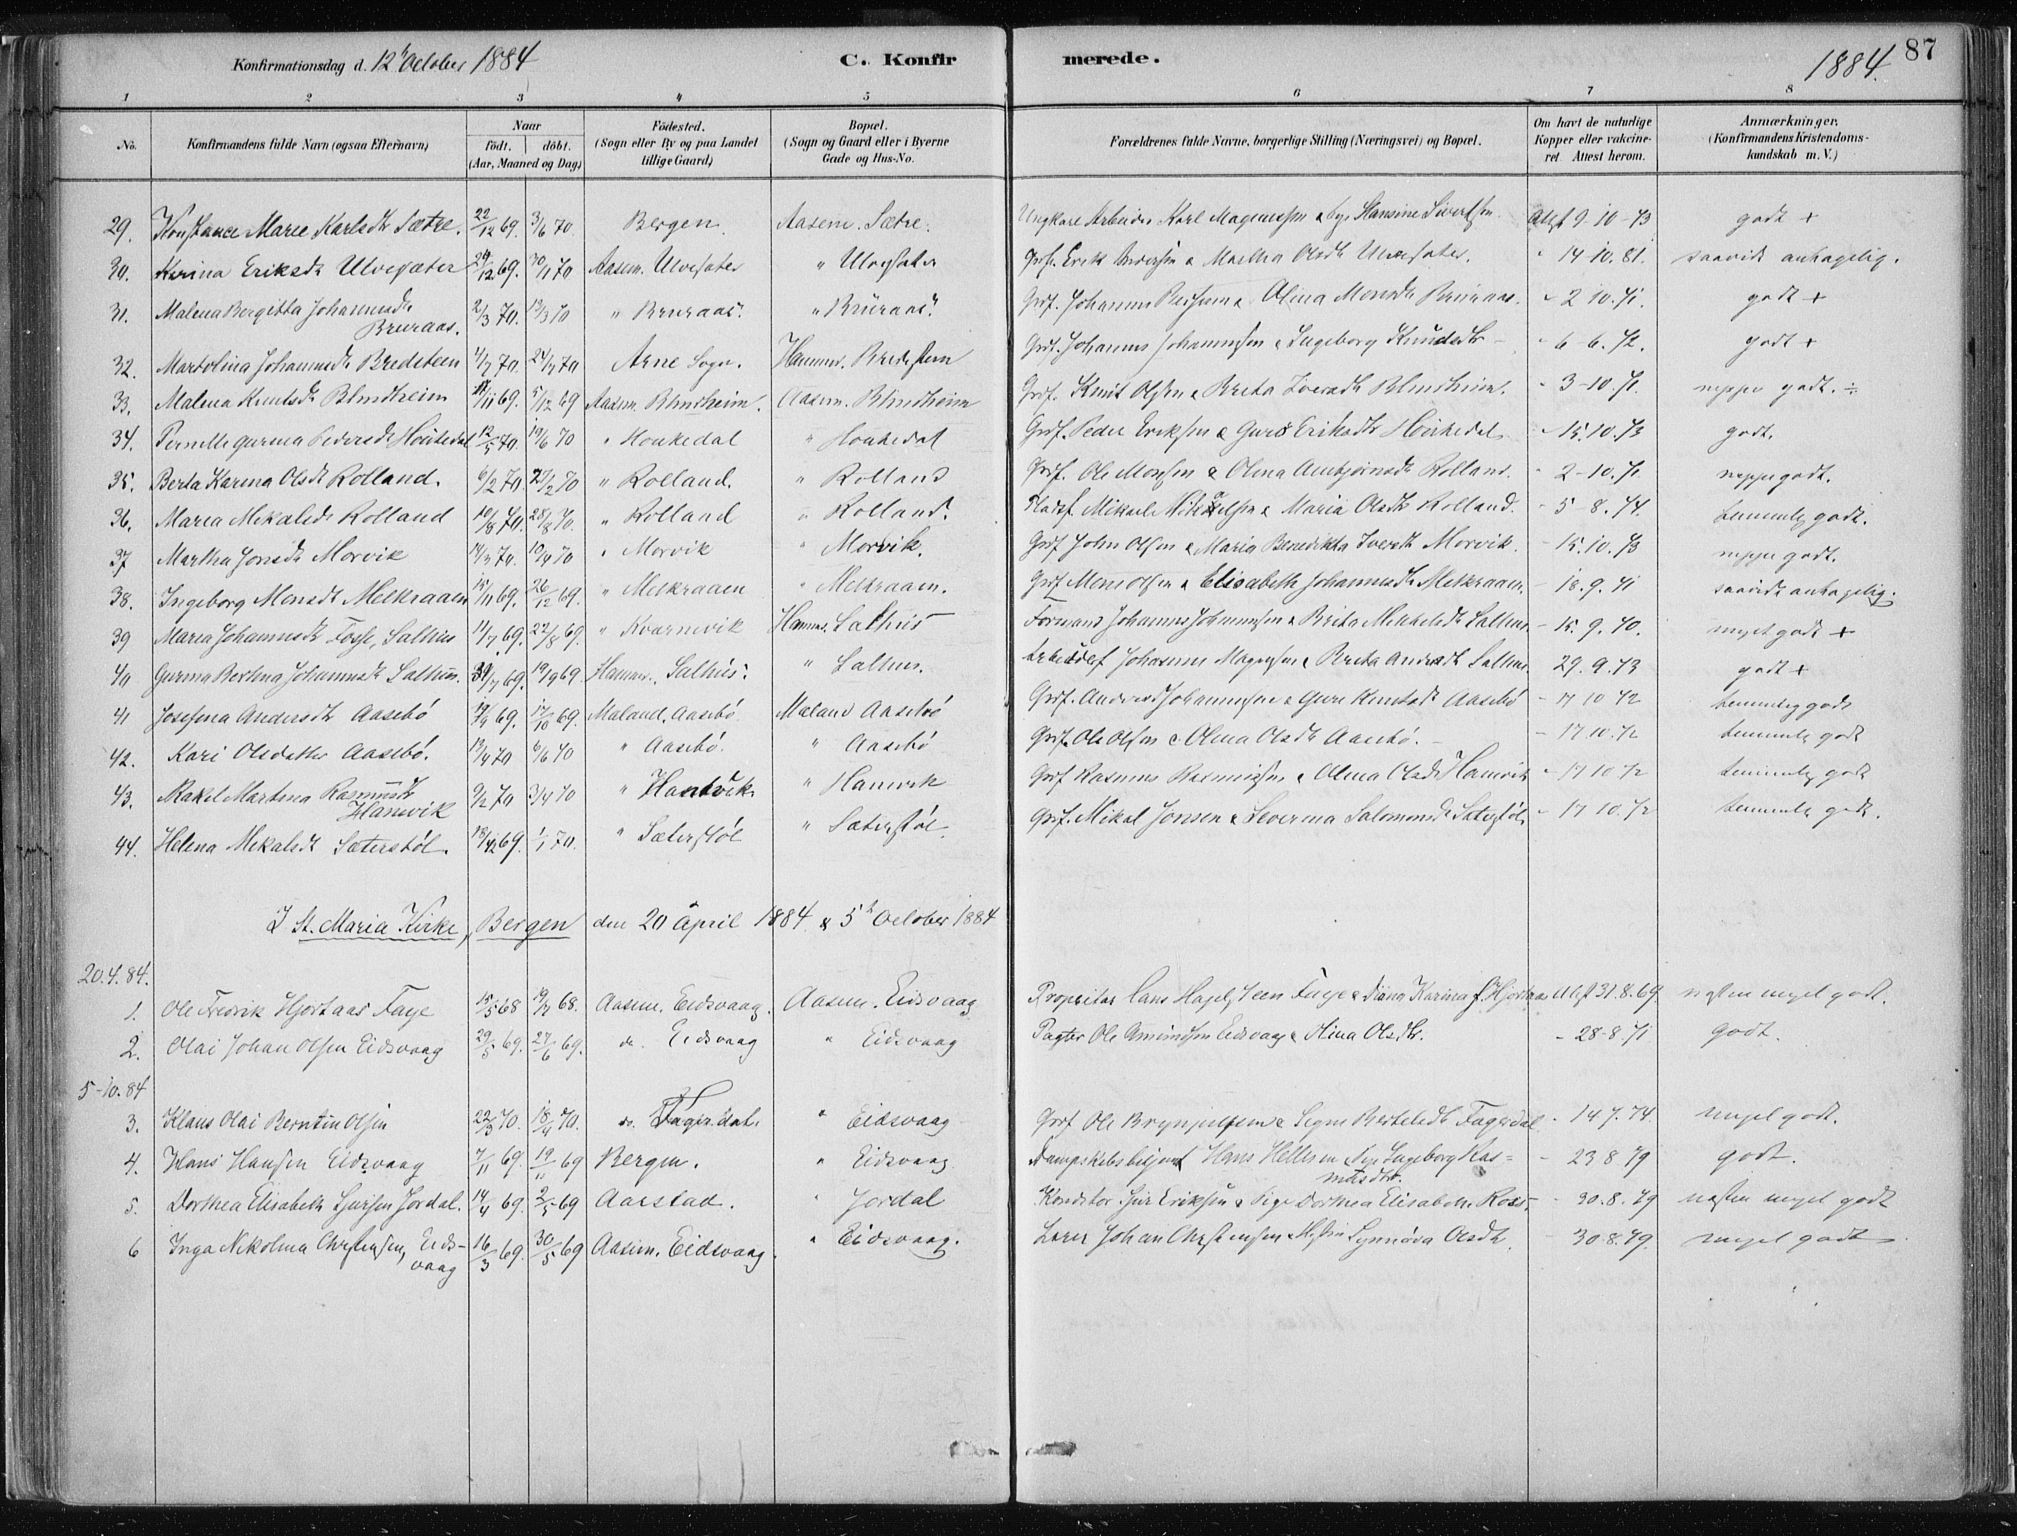 Konfirmationsdag d. 12te October 1884 C. Konfirmerede. 1884. 87
1 2 3 4 5 6 7 8
No. Konfirmandens fulde Navn (ogsaa Efternavn) Naar födt. döbt. (Aar, Maaned og Dag) Födested. (Sogn eller By og paa Landet tillige Gaard) Bopæl. (Sogn og Gaard eller i Byerne Gade og Hus-No. Forældrenes fulde Navne, borgerlige Stilling (Næringsvei) og Bopæl. Om havt de naturlige Kopper eller vakcineret. Attest herom. Anmærkninger. (Konfirmandens Kristendomskundskab m. V.)
29. Konstance Marie Karlsdt Sætre. 22/12 69. 3/6 70. Bergen. Aasene. Sætre. Ungkarl Arbeider Karl Magnussen & Pige Hansine Sivertsen. Attest 9-10-73 godt +
30. Karina Eriksdt Ulvesæter 24/12 69. 30/1 70 Aasene. Ulvesæter " Ulvesæter Grdf. Erik Andersen & Martha Olsdt Ulvesæter. " 14-10. 81. saavidt antagelig.
31. Malena Bergitta Johannesdt Bruraas. 2/3 70. 13/3 70 " Bruraas. " Bruraas. Grdf. Johannes & Olina Monsdt Bruraas. " 2 10. 71. godt +
32. Martolina Johannesdt Bredsteen 4/7 70. 24/7 70 Arne Sogn. Hammer. Bredesteen Grdf. Johannes Johannessen & Ingeborg Knudsdtr - " 6-6. 72. godt +
33. Malena Knutsdt Blindheim 11/11 69. 5/12 69 Aasene. Blindheim. Aasene. Blindheim Grdf. Knut Olsen & Brita Iversdt Blindheim. " 3-10. 71. neppe godt. ÷
34. Pernille Gurina Pedersdt Houkedal 12/5 70. 19/6 70 " Houkedal " Houkedal Grdf. Peder Eriksen & Guro Eriksdt Houkedal " 15. 10. 73 godt.
35. Berta Karina Olsdt Rolland. 6/2 70. 27/2 70 " Rolland. " Rolland Grdf. Ole Monsen & Olina Anbjørnsdt Rolland. " 2-10. 71 neppe godt.
36. Maria Mikalsdt Rolland 10/8 70. 28/8 70. " Rolland " Rolland. Pladsf. Mikael Mikalsen & Maria Olsdt Rolland. " 5-8. 74. temmelig godt.
37 Martha Jonsdt Morvik 14/3 70. 10/4 70 " Morvik " Morvik. Grdf. John Olsen & Maria Benedikta Iversdt Morvik. " 15. 10. 73 neppe godt.
38. Ingeborg Monsdt Melkraaen 15/11 69. 26/12 69. " Melkraaen " Melkraaen. Grdf Mons Olsen & Elisabeth Johannesdt Melkraaen. " 18. 9. 71 saavidt antagelig.
39 Maria Johannesdt Salhus 11/7 69. 22/8 69. " Kvarnevik Hammer. Salhus Formand Johannes Johannessen & Brita Mikkelsdt Salhus. " 15. 9. 70. meget godt +
40 Gurina Bertina Johannesdt Salhus. 31/7 69. 19/9 69. Hammer. Salhus. " Salhus. Arbeidsf. Johannes Magnussen & Brita Andersdt Salhus. 29. 9. 73 godt +
41 Josefina Andersdt Aasebø 14/9 69. 17/10 69. Mæland. Aasebø. Mæland Aasebø Grdf. Anders Johannessen & Guro Knutsdt Aasebø " 17 10 72 temmelig godt
42. Kari Olsdatter Aasebø. 13/4 70 6/6 70 " Aasebø. " Aasebø Grdf. Ole Olsen & Olina Olsdt Aasebø. - " 17 10. 72 temmelig godt
43. Rakel Martina Rasmusdt Hanevik 9/2 70 3/4 70 " Hanevik. " Hanevik Grdf Rasmus Rasmussen & Olina Olsdt Hanevik " 17 10. 72 temmelig godt
44. Helena Mikalsdt Sæterstøl. 18/12 69. 1/1 70. " Sæterstøl " Sæterstøl. Grdf. Mikal Jonsen & Severina Salomonsdt Sæterstøl. " 17 10. 72 temmelig godt.
I St. Maria Kirke, Bergen den 20 April 1884 & 5te October 1884
20.4.84.
1. Ole Fredrik Hjortaas Faye 15/5 68 19/7 68. Aasene. Eidsvaag. Aasene. Eidsvaag Proprietær Hans Hagelsteen Faye & Diana Karina f. Hjortaas Attest 31. 8. 69 næsten meget godt.
2. Olai Johan Olsen Eidsvaag 29/5 69. 27/6 69. do. Eidsvaag " Eidsvaag Pagter Ole Amundsen Eidsvaag & Stina Olsdtr. " 28-8. 71 godt.
5-10.84
3. Klaus Olai Berntin Olsen 22/3 70. 18/4 70. do. Fagerdal. " Eidsvaag Grdf Ole Brynjulfsen & Signe Bertelsdt Fagerdal " 14 7. 74. meget godt.
4. Hans Hansen Eidsvaag 7/11 69. 19/11 69 Bergen. " Eidsvaag Hans Hellesen & Pige Ingeborg Ras= musdtr. " 23 8 79 godt.
5. Dorthea Elisabeth Sjursen Jordal. 14/4 69. 2/5 69 Aarstad. " Jordal Konditor Sjur Eriksen & Pige Dorthea Elisabeth Ross. " 30. 8. 79 næsten meget godt
6 Inga Nikolina Christensen, Eids- vaag 16/3 69. 30/5 69 Aasene. Eidsvaag. " Eidsvaag. Lærer Johan Christensen & Synnøva Olsdt. " 30. 8. 79. meget godt